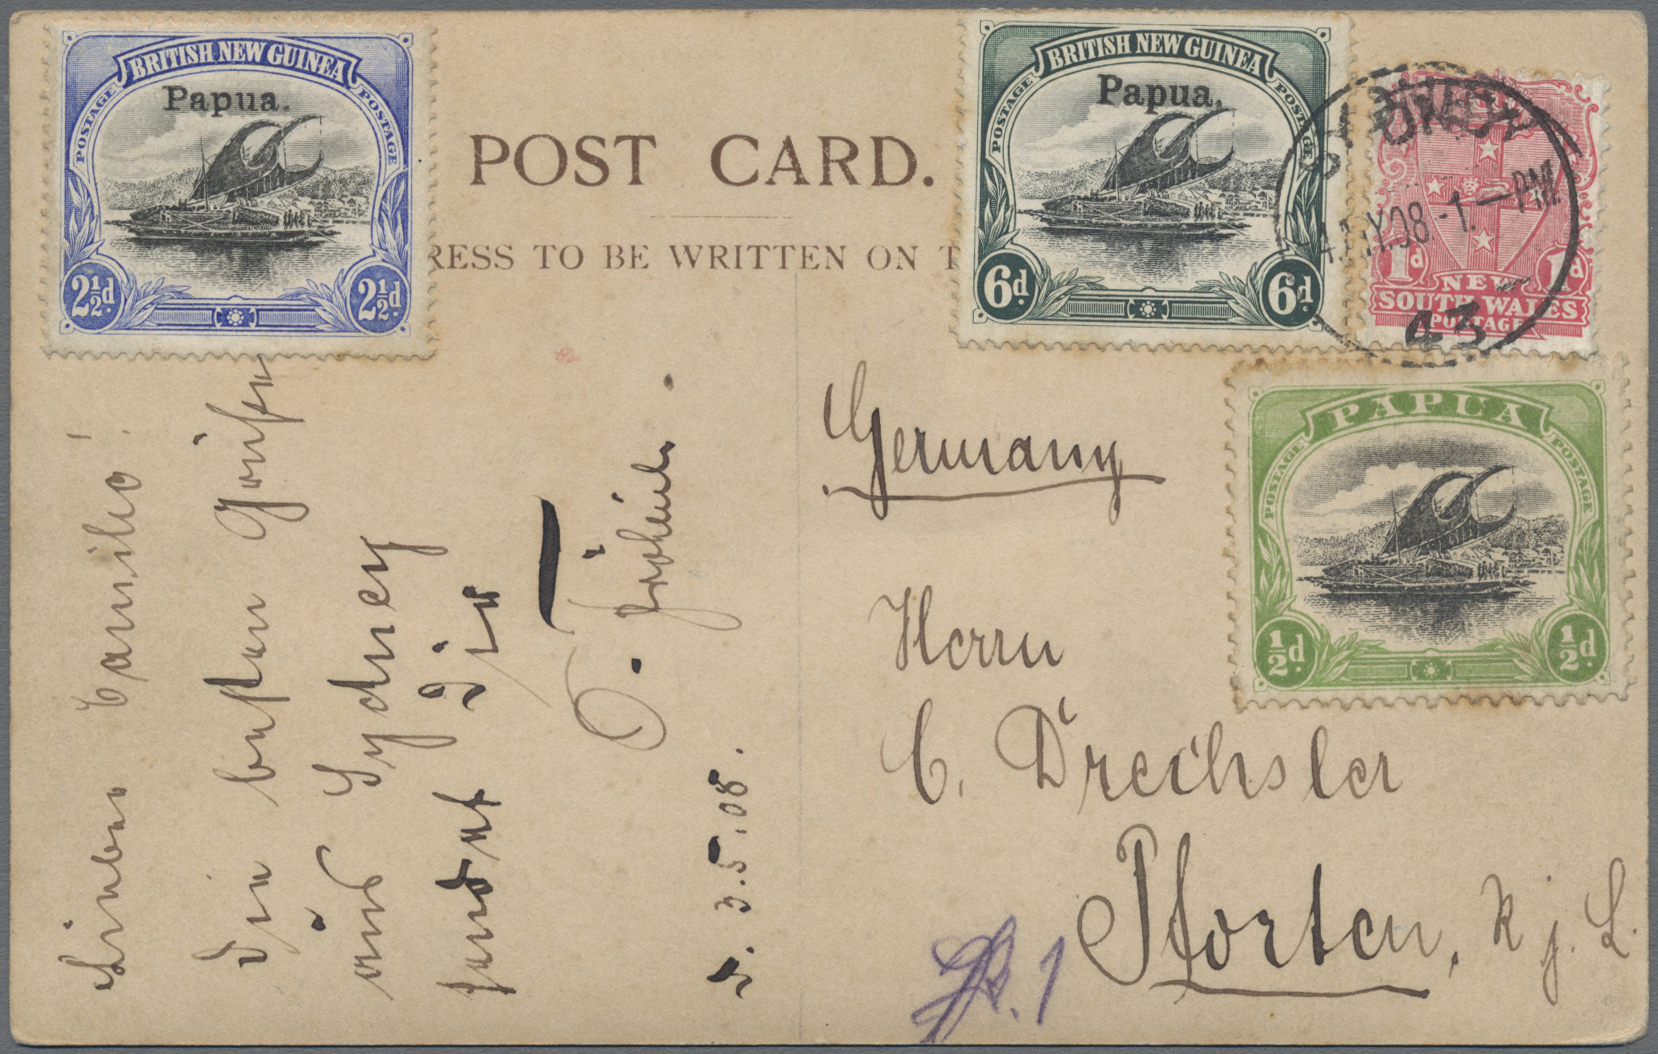 BRITISH NEW GUINEA
POSTAGE POSTAGE
Papua.
2½d. 2½d.
POST CARD.
RESS TO BE WRITTEN ON T
BRITISH NEW GUINEA
POSTAGE POSTAGE
Papua.
6d. 6d.
SYDNEY
MY.08.-1.-P.M.
43
1d 1d
NEW
SOUTH WALES
POSTAGE
PAPUA
POSTAGE POSTAGE
½d. ½d.
Lieber Camillo!
Die besten Grüße
aus Sydney
sendet Dir
d. 3.5.08.
Germany
Herrn
C. Drechsler
Pforten, N. L.